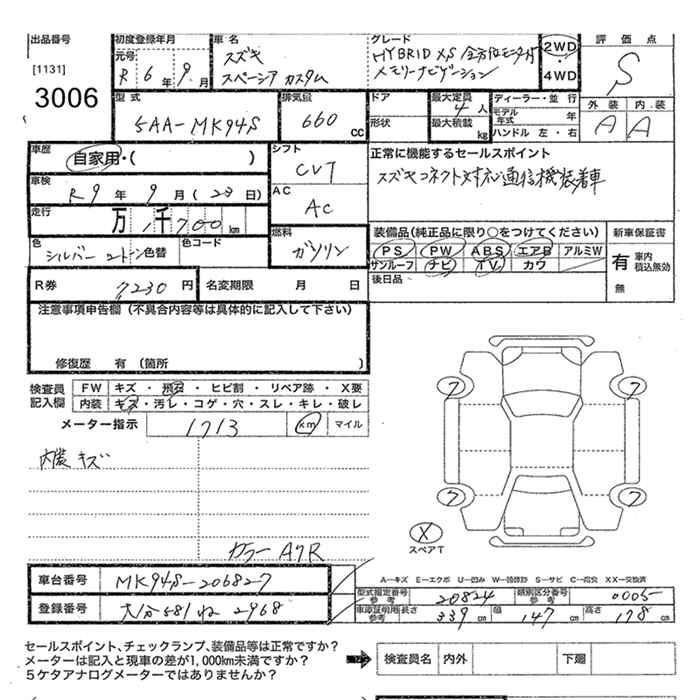 出品番号 初度登録年月 車名 グレード 評価点
[1131] 元号 R 6年 9月 スズキ スペーシア カスタム HYBRID XS 全方位モニター付 メモリーナビゲーション 2WD・4WD S
3006
型式 排気量 ドア 最大定員 ディーラー・並行 外装 内装
5AA-MK94S 660 cc 形状 4人 モデル年式 年 A A
最大積載 kg ハンドル 左・右
車歴 自家用・( ) シフト CVT 正常に機能するセールスポイント
車検 R9年 9月 (23日) AC AC スズキコネクト対応通信機装着車
走行 万 1千700km 燃料 ガソリン 装備品(純正品に限り○をつけてください) 新車保証書
色 シルバー 2トーン 色替 色コード PS PW ABS エアB アルミW 有 車内積込無効
サンルーフ ナビ TV カワ
R券 7230円 名変期限 月 日 後日品 無
注意事項申告欄 (不具合内容等は具体的に記入して下さい)
修復歴 有 (箇所 )
検査員記入欄 FW キズ・飛石・ヒビ割・リペア跡・X要
内装 キズ・汚レ・コゲ・穴・スレ・キレ・破レ
メーター指示 1713 km マイル
内装キズ
7 7
7 7
X
スペアT
カラー A7R
A―キズ E―エクボ U―凹み W―補修跡 S―サビ C―腐食 XX―交換済
車台番号 MK94S-206827 型式指定番号 参考 20824 類別区分番号 参考 0005
登録番号 大分 581 ね 2968 車庫証明用 参考 長さ 339cm 幅 147cm 高さ 178cm
セールスポイント、チェックランプ、装備品等は正常ですか?
メーターは記入と現車の差が1,000km未満ですか? 検査員名 内外 下廻
5ケタアナログメーターではありませんか?